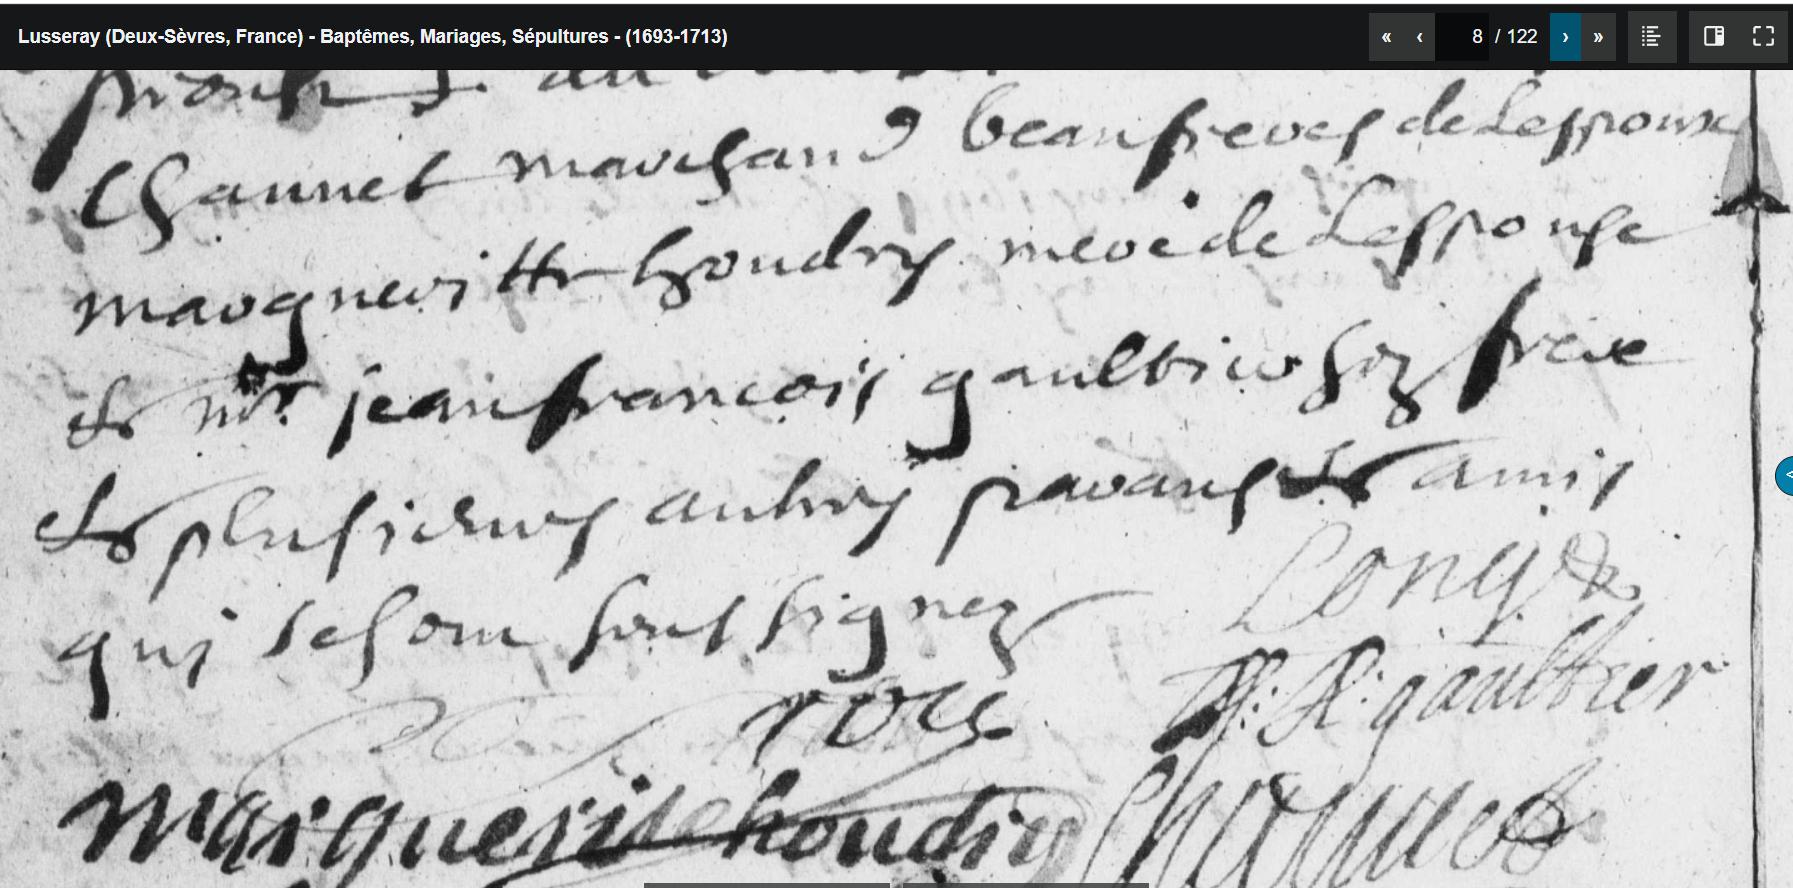 Lusseray (Deux-Sèvres, France) - Baptêmes, Mariages, Sépultures - (1693-1713)
« ‹ 8 / 122 › »
Channet marchand beaufreres de Lespoux
margueritte houdry mere de Lespouse
et mr. jean francois gaultier son frere
et plusieurs autres parans et amis
qui se sont sousignez
gaultier
Marguerite houdry Channet